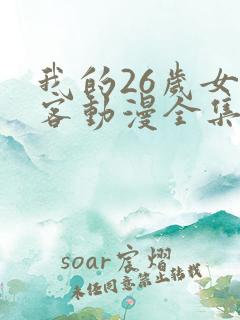 我的26歲女
客動漫全集
soar宸熠
未经同意禁止转载